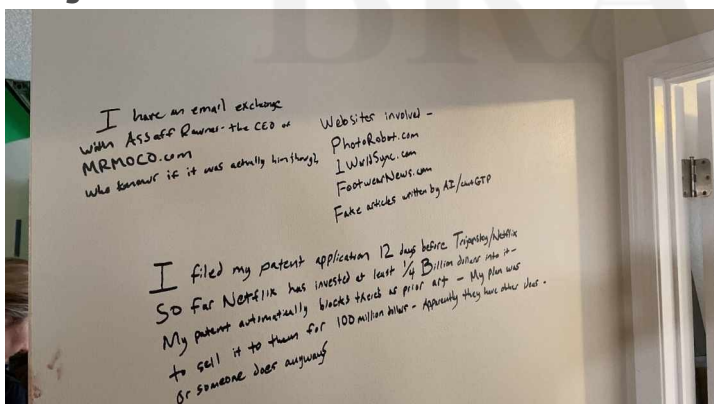 I have an email exchange
with Assaff Rawner - the CEO of
MRMOCO.com
who knows if it was actually him though
Websites involved -
PhotoRobot.com
1WorldSync.com
FootwearNews.com
Fake articles written by AI/chatGTP
I filed my patent application 12 days before /Netflix
So far Netflix has invested at least 1/4 Billion dollars into it -
My patent automatically blocks theirs as prior art - My plan was
to sell it to them for 100 million dollars - Apparently they have other ideas.
Or someone does anyways
BRA